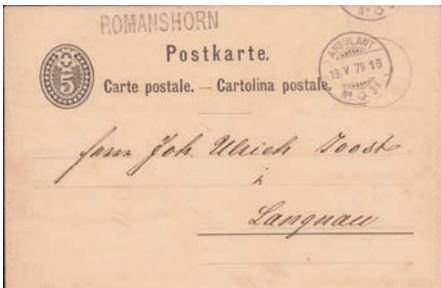 ROMANSHORN
Postkarte.
Carte postale. — Cartolina postale.
5
AMBULANT
13 V 79 16
No
Herrn Joh. Ulrich Joost
i
Langnau